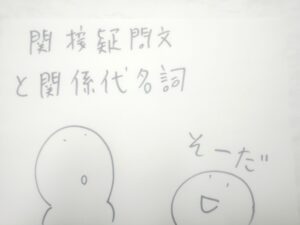 関接疑問文
と関係代名詞
そーだ